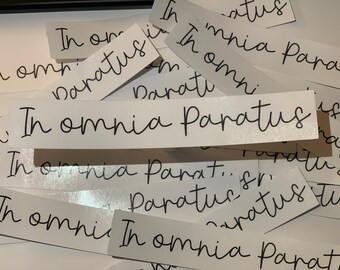 In omnia Paratus
In omnia
Paratus
In omnia Paratus
In omnia
In omnia Paratus
In omnia Paratus
In omnia Paratus
Paratus
In omnia
In omnia Paratus